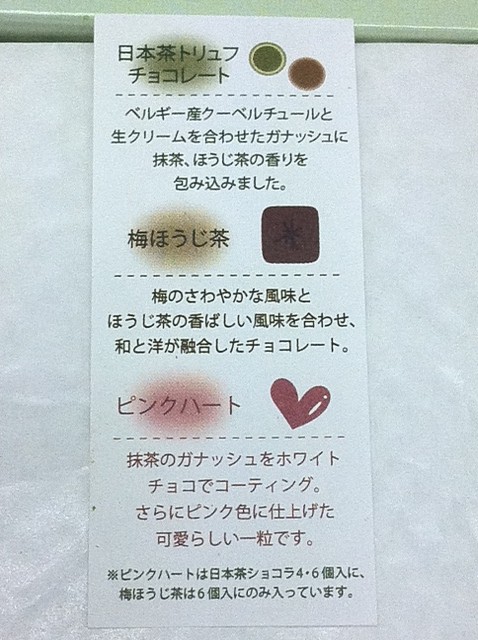 日本茶トリュフ
チョコレート
ベルギー産クーベルチュールと
生クリームを合わせたガナッシュに
抹茶、ほうじ茶の香りを
包み込みました。
梅ほうじ茶
梅のさわやかな風味と
ほうじ茶の香ばしい風味を合わせ、
和と洋が融合したチョコレート。
ピンクハート
抹茶のガナッシュをホワイト
チョコでコーティング。
さらにピンク色に仕上げた
可愛らしい一粒です。
※ピンクハートは日本茶ショコラ4・6個入に、
梅ほうじ茶は6個入にのみ入っています。